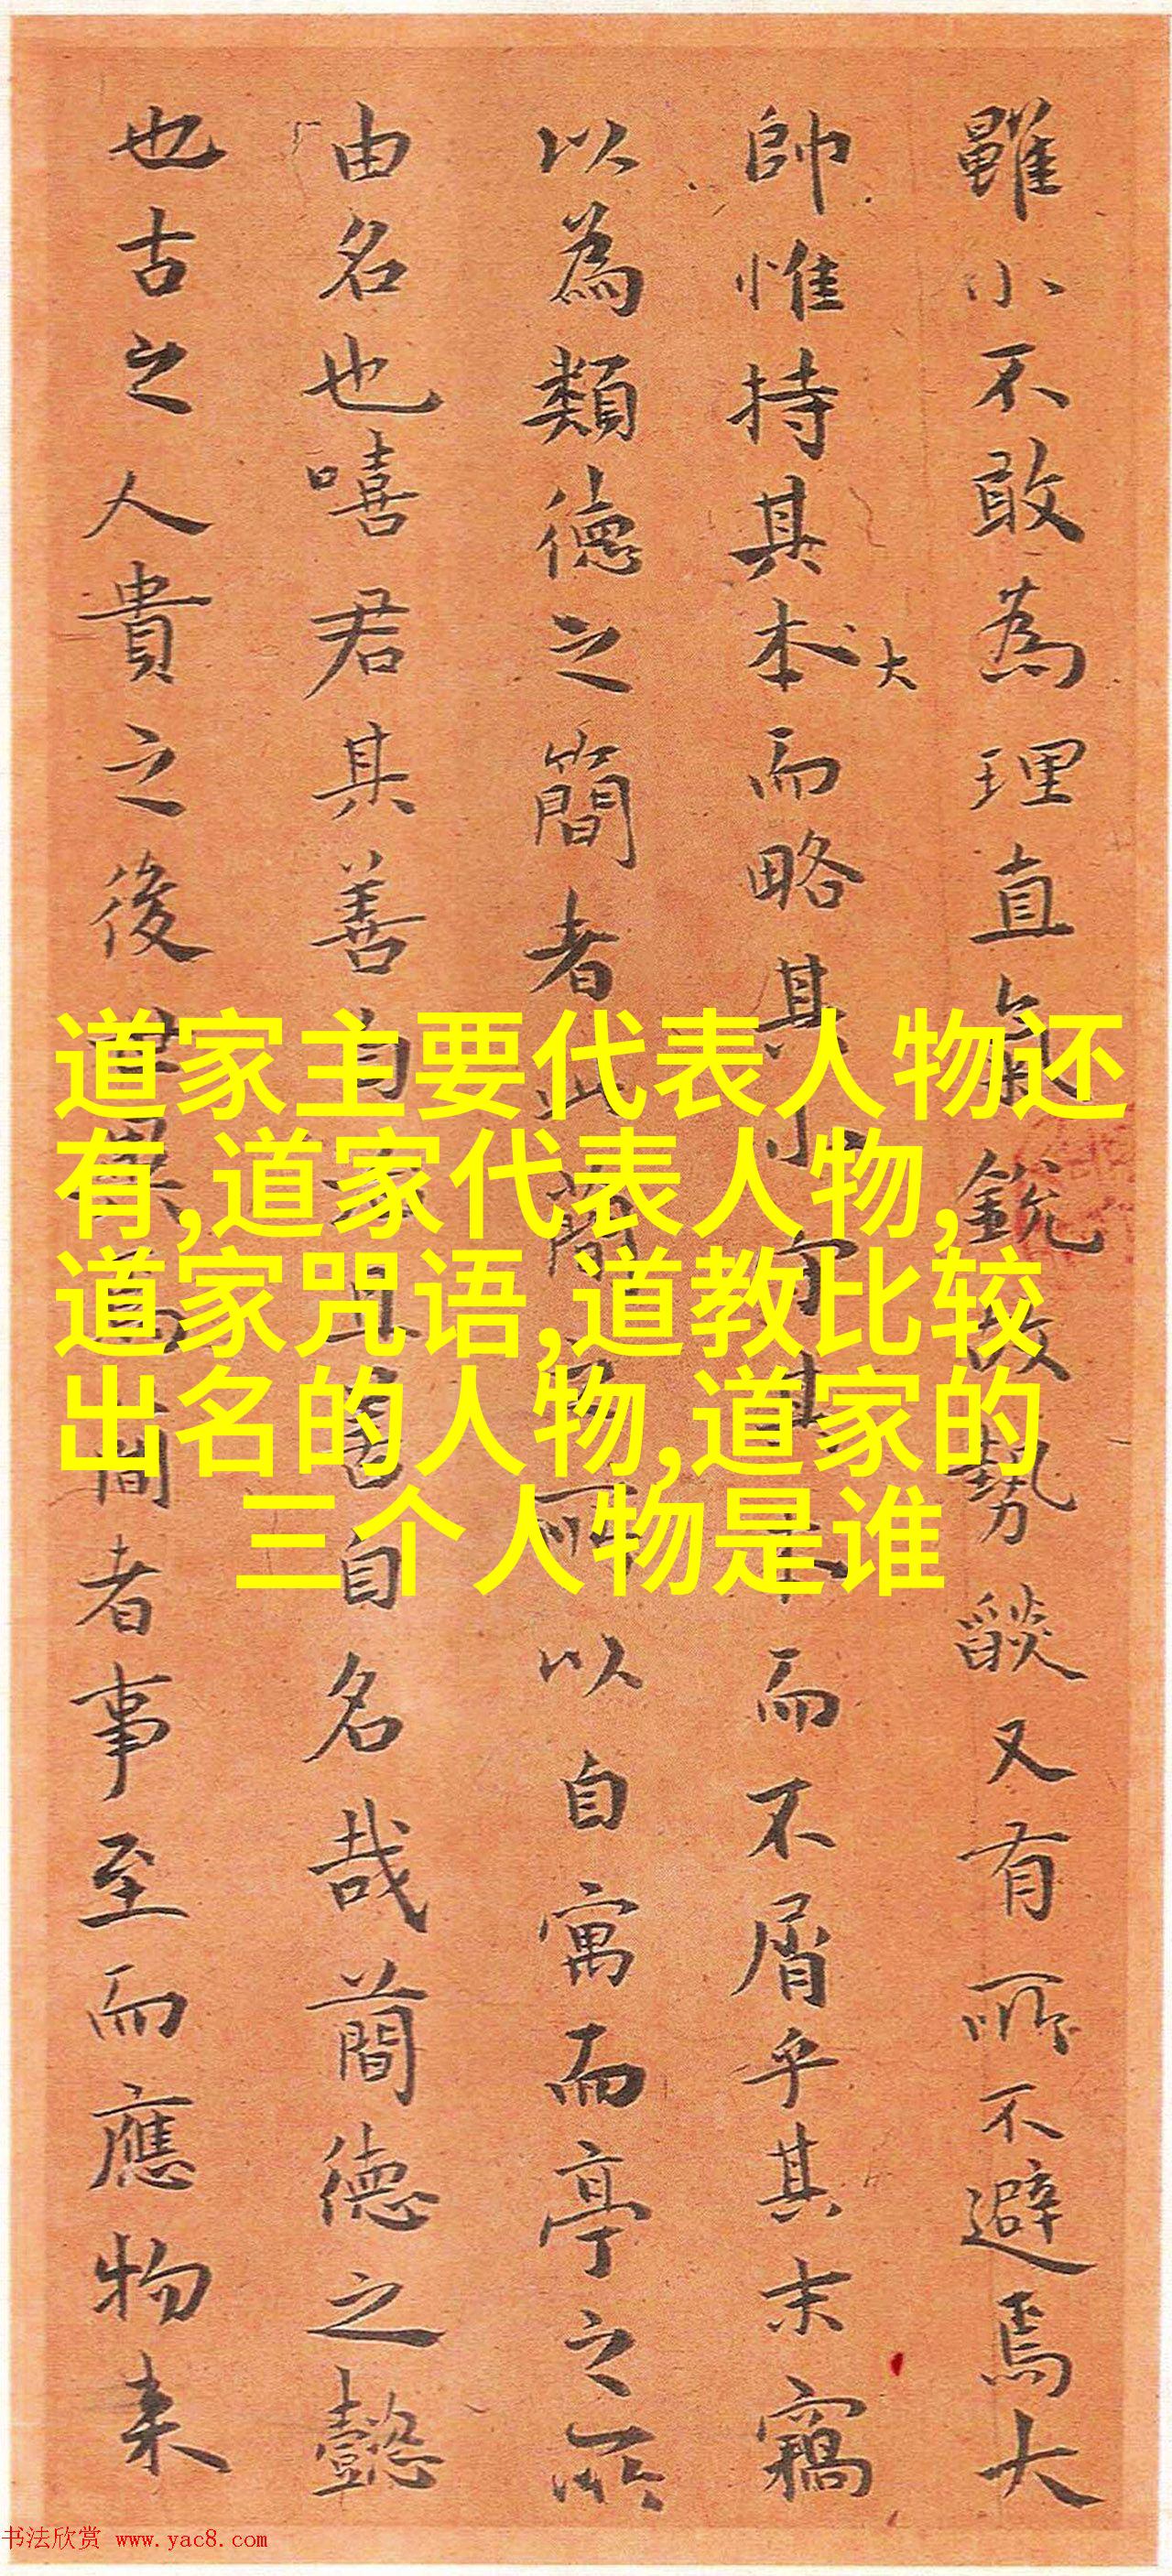 雖小不敢為理直氣銳故勢燄又有所不避焉大
帥惟持其本而略其
大
而不屑乎其末竊
以為類德之簡者此簡
所以自寓而亭之所
由名也嘻君其善
自名哉簡德之懿
也古之人貴之後
者事至而應物来
道家主要代表人物还
有,道家代表人物,
道家咒语,道教比较
出名的人物,道家的
三个人物是谁
书法欣赏 www.yac8.com